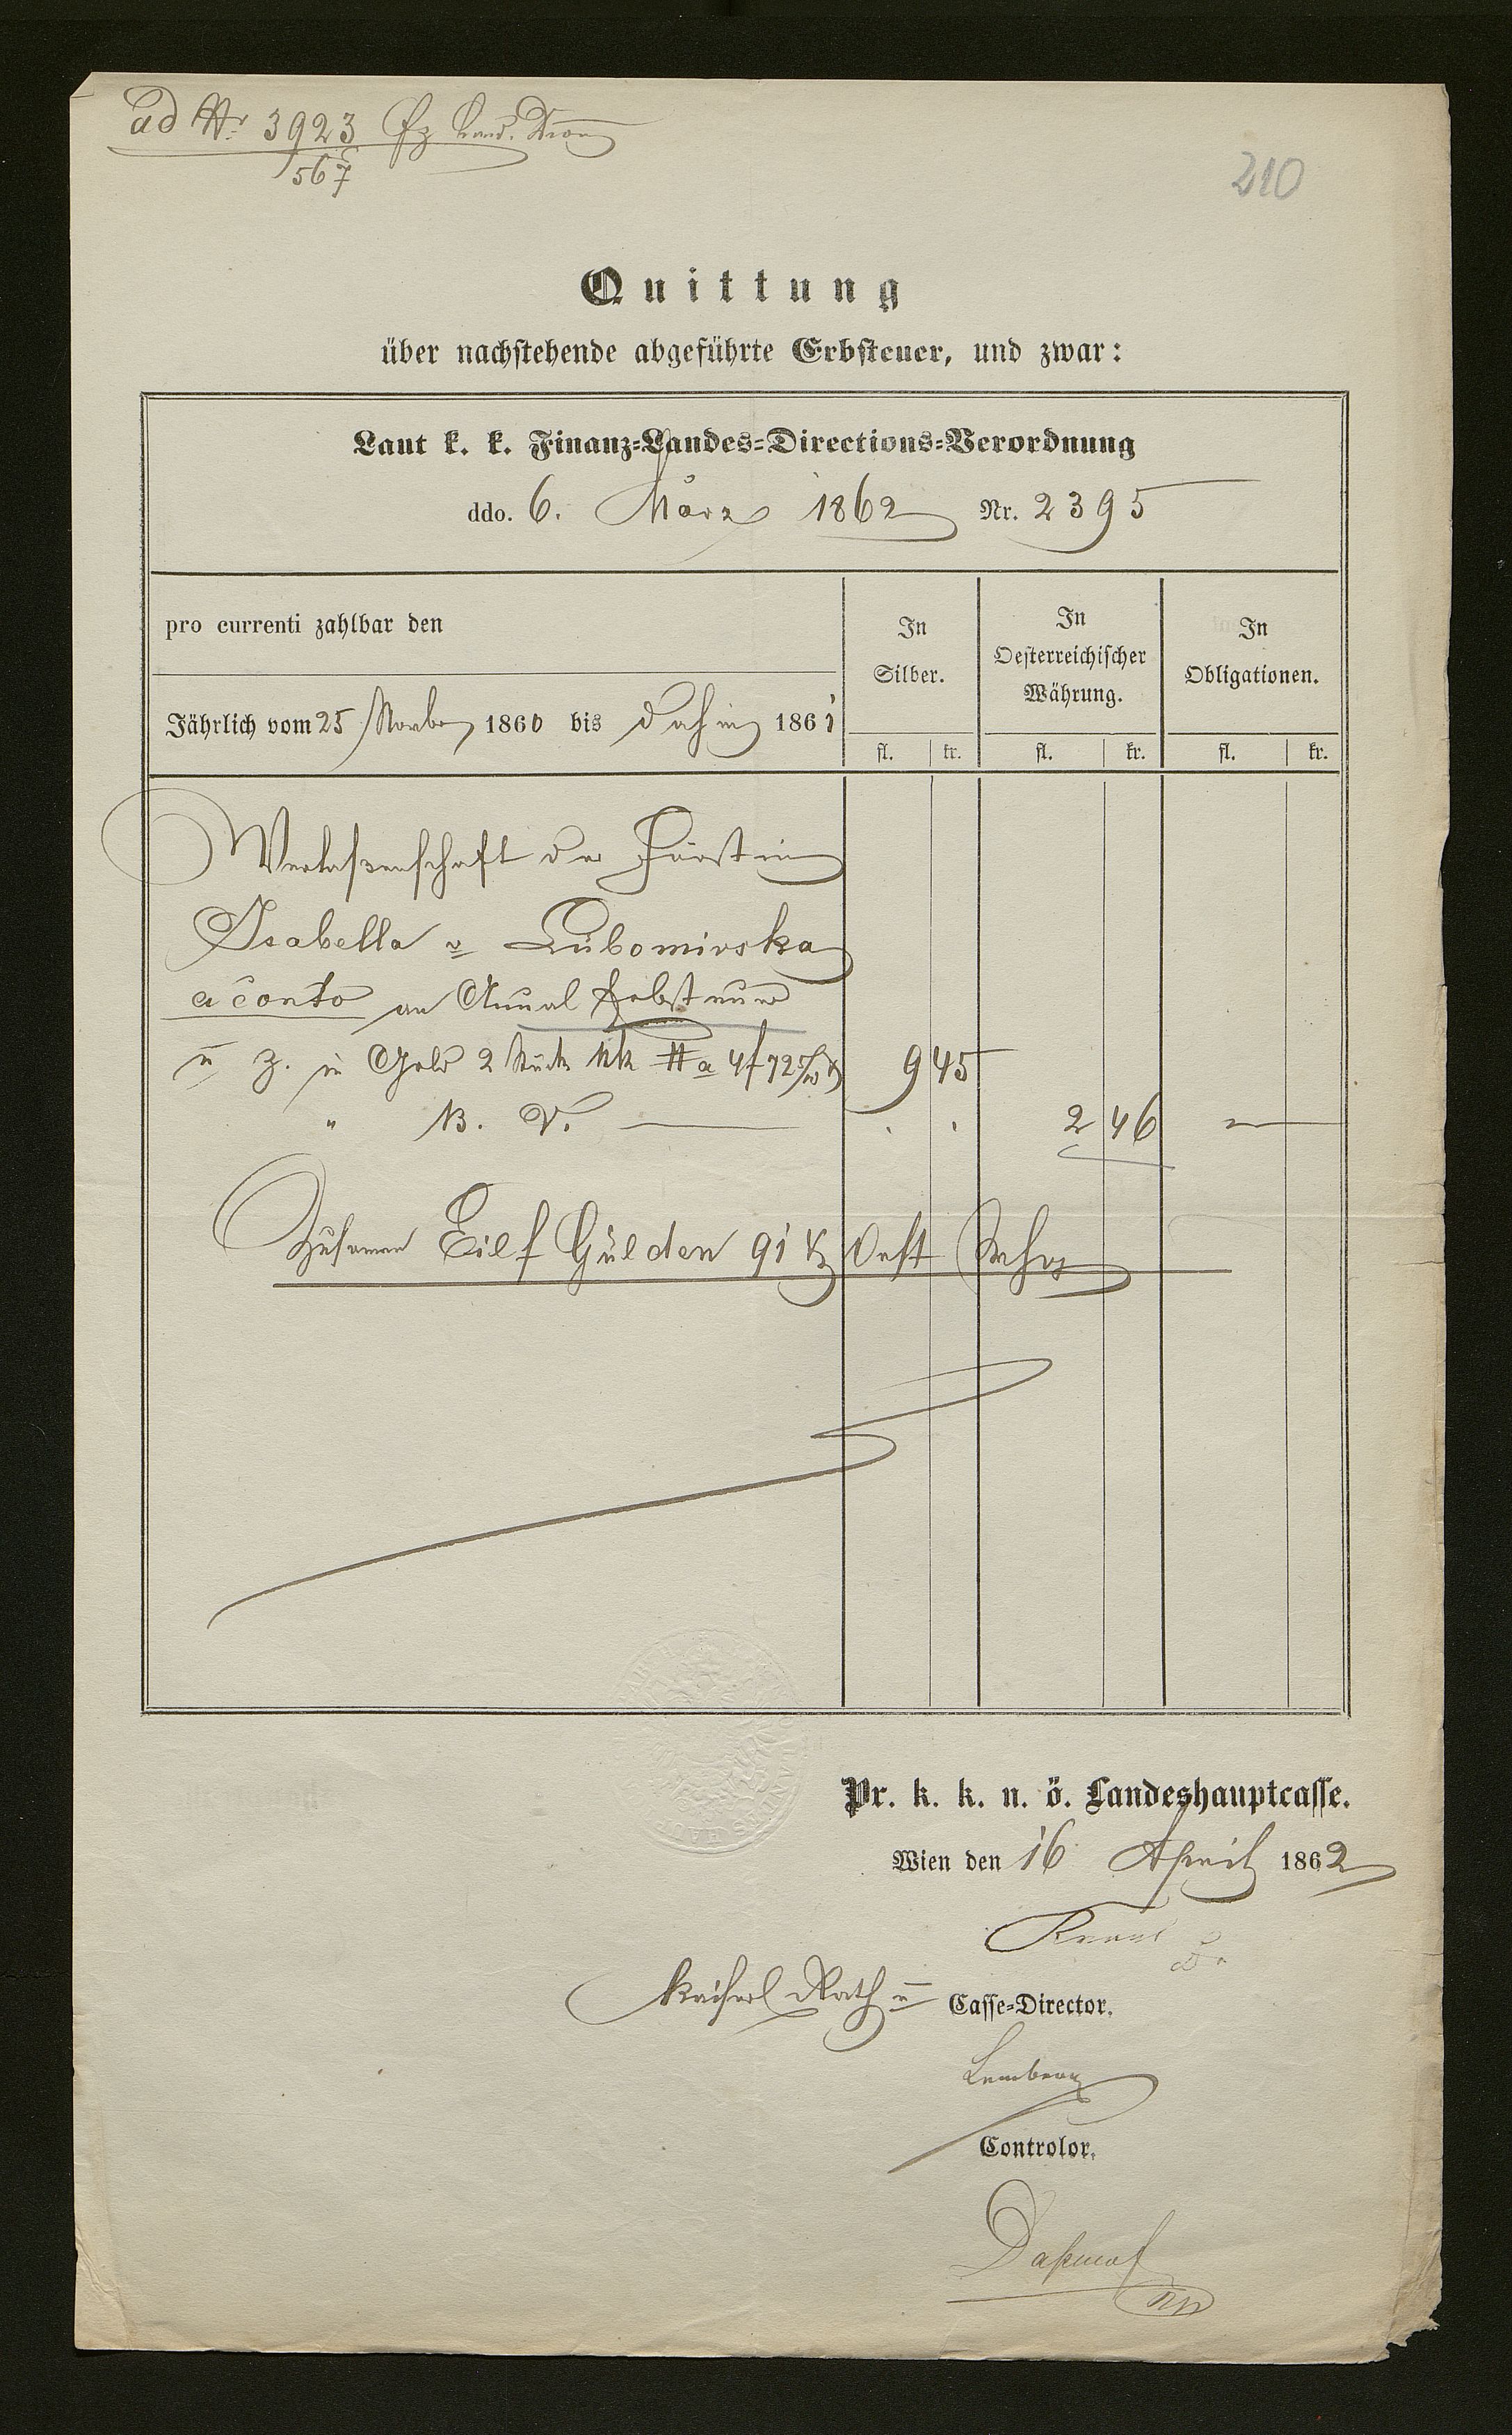 ad Nr 3923
567
210
Quittung
über nachstehende abgeführte Erbsteuer, und zwar:
Laut k. k. Finanz-Landes-Directions-Verordnung
ddo. 6. März 1862 Nr. 2395
pro currenti zahlbar den
In Silber.
In Oesterreichischer Währung.
In Obligationen.
Jährlich vom 25 Novber 1860 bis dahin 1861
fl. kr. fl. kr. fl. kr.
Verlaßenschaft der Fürstin
Isabella v Lubomirska
a conto an Annal Erbsteuer
u z. in Gold 2 Stück # a 4f 72 5/10 x 9 45
" B. V. — . . 2 46 —
Zusamen Eilf Gulden 91 kr Oest Währg
Pr. k. k. n. ö. Landeshauptcasse.
Wien den 16 April 1862
Kaiserl Rath u Casse-Director.
Controlor.